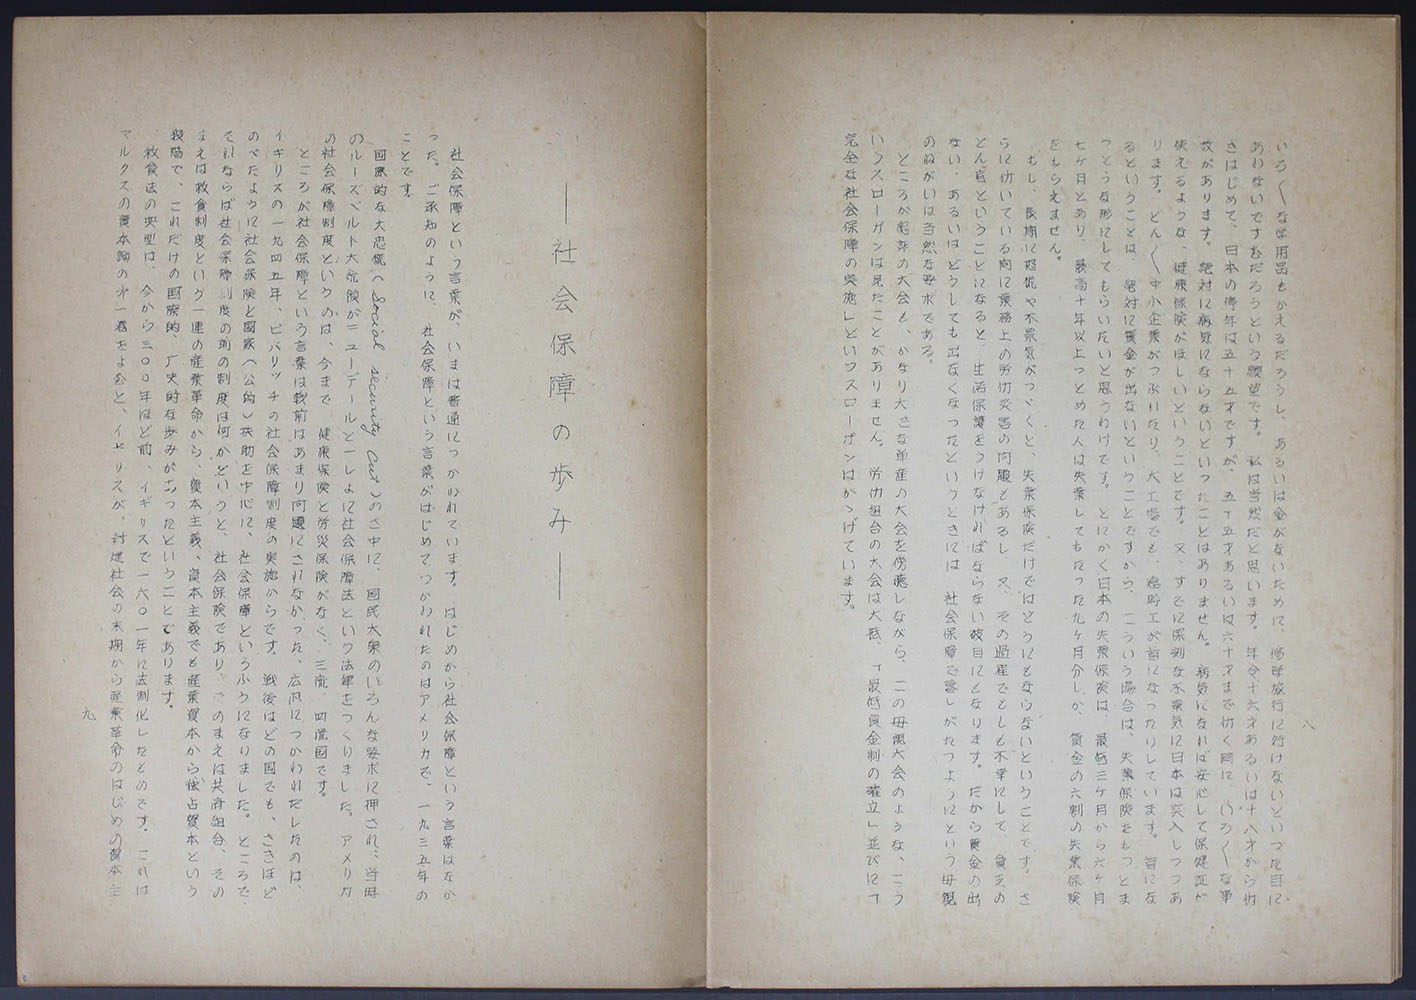 いろ〱な学用品もかえるだろうし、あるいは金がないために、修学旅行に行けないといった目に
あわないですむだろうという願望です。私は当然だと思います。年令十六才あるいは十八才から働
きはじめて、日本の停年は五十五才ですが、五十五才あるいは六十才まで働く間に、いろ〱な事
故があります。絶対に病気にならないといったことはありません。病気になれば安心して保健証が
使えるような、健康保険がほしいということです。又、すでに深刻な不景気に日本は突入しつつあ
ります。どん〱中小企業がつぶれたり、大工場でも、臨時工が首になったりしています。首にな
るということは、絶対に賃金が出ないということですから、こういう場合は、失業保険をもっとま
っとうな形にしてもらいたいと思うわけです。とにかく日本の失業保険は、最低三ヶ月から六ヶ月
七ヶ月とあり、最高十年以上つとめた人は失業してもたった九ヶ月分しか、賃金の六割の失業保険
をもらえません。
もし、長期に恐慌や不景気がつゞくと、失業保険だけではどうにもならないということです。さ
らに働いている間に業務上の労働災害の問題もあるし、又、その過程でとしも不幸にして、貧乏の
どん底ということになると、生活保護をうけなければならない破目になります。だから賃金の出
ない、あるいはどうしても出なくなったというときには、社会保障で暮しがたつようにという母親
のねがいは当然な要求である。
ところが総評の大会も、かなり大きな単産の大会を傍聴しながら、この母親大会のような、こう
いうスローガンは見たことがありません。労働組合の大会は大抵、「最低賃金制の確立」並びに「
完全な社会保障の実施」というスローガンはかゝげています。
八
―社会保障の歩み―
社会保障という言葉が、いまは普通につかわれています。はじめから社会保障という言葉はなか
った。ご承知のように、社会保障という言葉がはじめてつかわれたのはアメリカで、一九三五年の
ことです。
国際的な大恐慌(Social security act)のさ中に、国民大衆のいろんな要求に押されて当時
のルーズベルト大統領がニューデールと一しょに社会保障法という法律をつくりました。アメリカ
の社会保障制度というのは、今まで、健康保険と労災保険がなく、三度、四度国です。
ところが社会保障という言葉は戦前はあまり問題にされなかった、広汎につかわれだしたのは、
イギリスの一九四五年、ビバリッチの社会保障制度の実施からです。戦後はどの国でも、さきほど
のべたように社会保険と国家(公的)扶助を中心に、社会保障というふうになりました。ところで、
それならば社会保障制度の前の制度は何かというと、社会保険であり、そのまえは共済組合、その
まえは救食制度という一連の産業革命から、資本主義、資本主義でも産業資本から独占資本という
段階で、これだけの国際的、历史的な歩みがあったということであります。
救食法の典型は、今から三〇〇年ほど前、イギリスで一六〇一年に法制化したものです。これは
マルクスの資本論の第一巻をよむと、イギリスが、封建社会の末期から産業革命のはじめの資本主
九